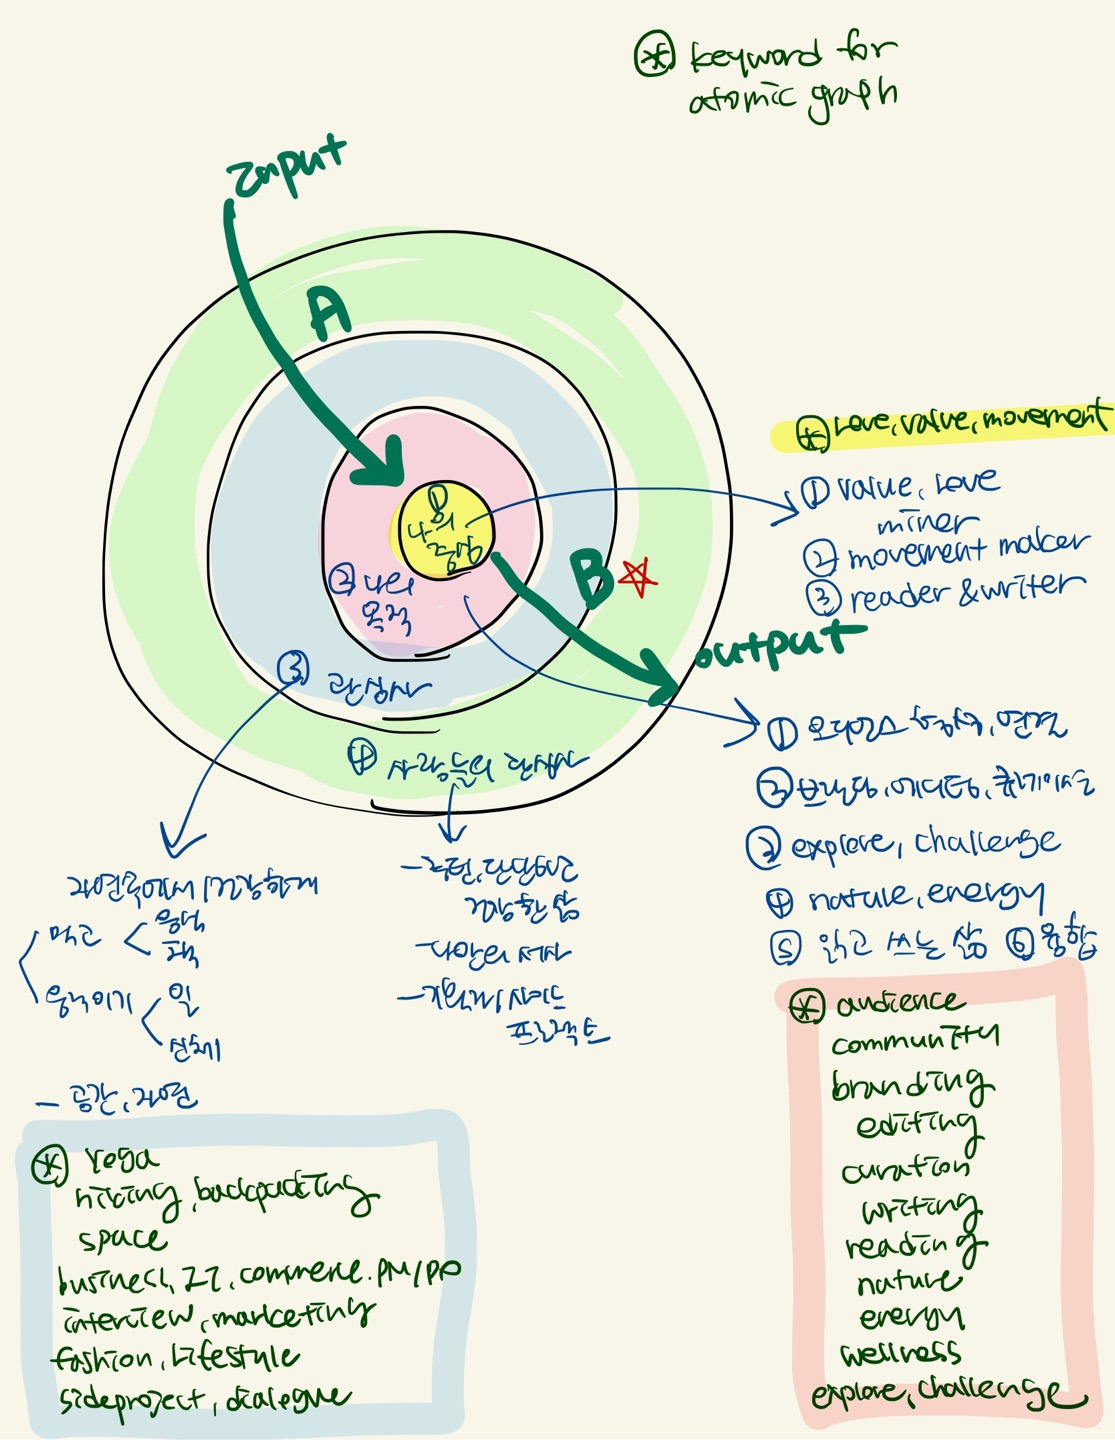 * keyword for
atomic graph
Input
A
① 나의
중심
② 나의
목적
B
output
③ 관심사
④ 사람들의 관심사
* Love, value, movement
① value, love
miner
② movement maker
③ reader & writer
① 오디언스 연결
② 브랜딩, 에디팅, 큐레이션
③ explore, challenge
④ nature, energy
⑤ 읽고 쓰는 삶 ⑥ 융합
자연속에서 건강하게
먹고
움직이기
일
- 공간, 자연
건강한 삶
- 다양한 서사
사이드
프로젝트
* Yoga
hiking, backpacking
space
business, IT, commerce. PM/PO
interview, marketing
fashion, Lifestyle
sideproject, dialogue
* audience
community
branding
editing
curation
writing
reading
nature
energy
wellness
explore, challenge